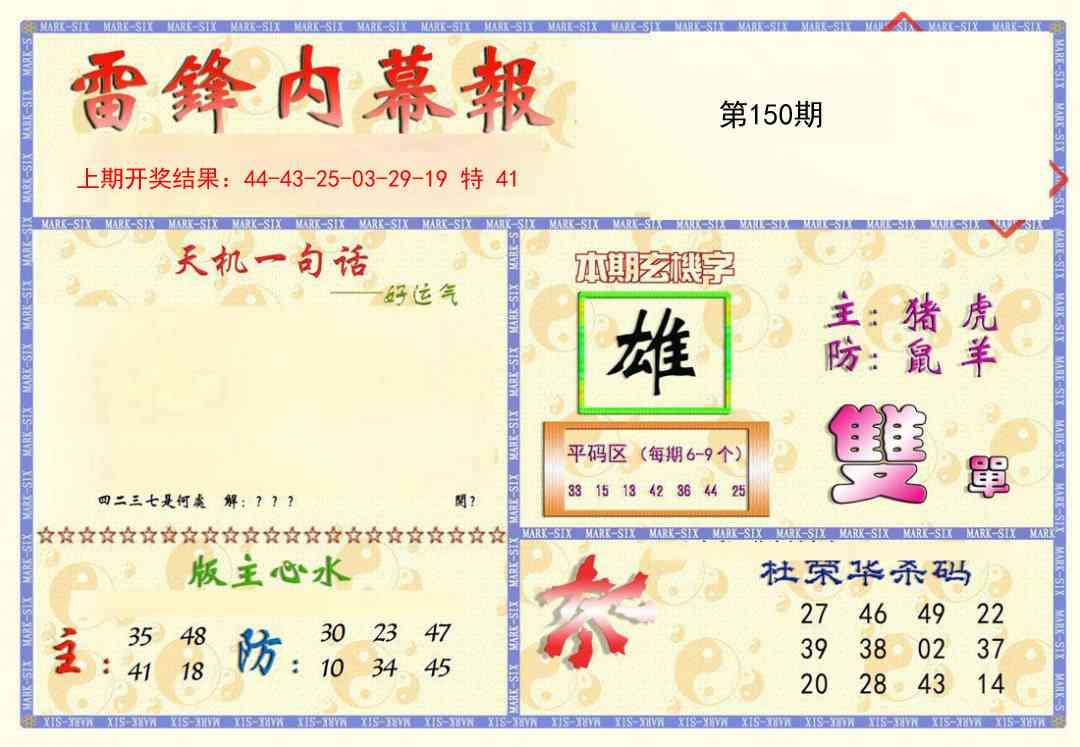 雷鋒内幕報
第150期
上期开奖结果：44-43-25-03-29-19 特 41
天机一句话
——好运气
四二三七是何處 解：？？？ 開？
本期玄機字
雄
主：猪 虎
防：鼠 羊
平码区（每期6-9个）
33 15 13 42 36 44 25
雙 單
版主心水
主： 35 48 防： 30 23 47
41 18 10 34 45
杀
杜荣华杀码
27 46 49 22
39 38 02 37
20 28 43 14
MARK-SIX